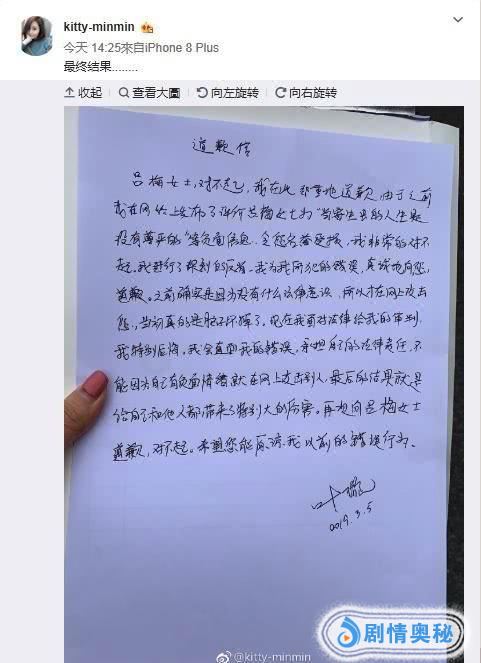 kitty-minmin
今天 14:25來自iPhone 8 Plus
最终结果........
收起 查看大圖 向左旋转 向右旋转
道歉信
吕梅女士,对不起,我在此郑重地道歉,由于之前
我在网络上发布了评价吕梅女士为"当寄生虫的人生是
没有尊严的"等负面信息,令您名誉受损,我非常的对不
起。我进行了深刻的反省,我为我所犯的错误,真诚地向您
道歉。之前确实是因为没有什么法律意识,所以才在网上攻击
您,当初真的是脑子坏掉了。现在我面对法律给我的审判,
我特别后悔。我会直面我的错误,承担自己的法律责任,不
能因为自己有负面情绪就在网上攻击别人,最后的结果就是
给自己和他人都带来了特别大的伤害。再次向吕梅女士
道歉,对不起。希望您能原谅我以前的错误行为。
叶璇
2019.3.5
@kitty-minmin
剧情奥秘